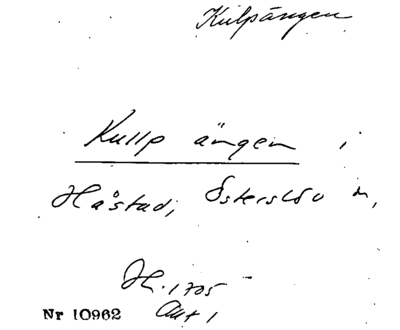 Kulpängen
Kullp ängen i
Håstad, Österslöv sn,
H. 1705
Akt 1
Nr 10962